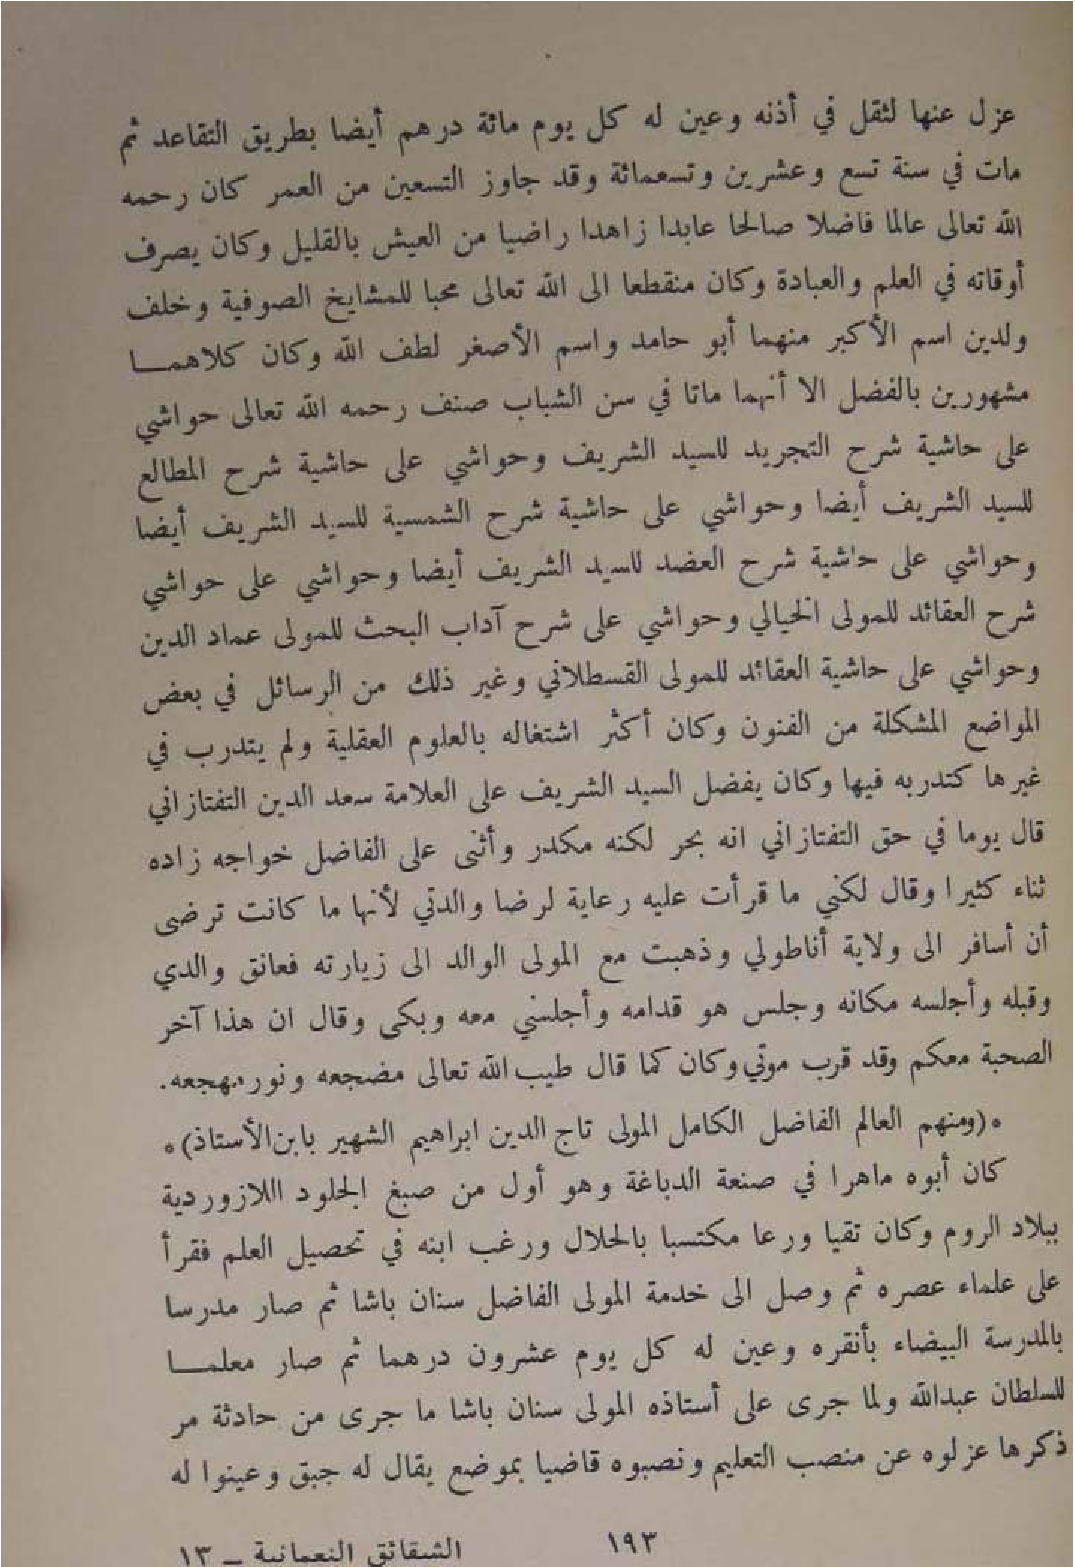 عزل عنها لثقل في أذنه وعين له كل يوم مائة درهم أيضا بطريق التقاعد ثم
مات في سنة تسع وعشرين وتسعمائة وقد جاوز التسعين من العمر كان رحمه
الله تعالى عالما فاضلا صالحا عابدا زاهدا راضيا من العيش بالقليل وكان يصرف
أوقاته في العلم والعبادة وكان منقطعا الى الله تعالى محبا للمشايخ الصوفية وخلف
ولدين اسم الأكبر منهما أبو حامد واسم الأصغر لطف الله وكان كلاهمـــا
مشهورين بالفضل الا أنهما ماتا في سن الشباب صنف رحمه الله تعالى حواشي
على حاشية شرح التجريد للسيد الشريف وحواشي على حاشية شرح المطالع
للسيد الشريف أيضا وحواشي على حاشية شرح الشمسية للسيد الشريف أيضا
وحواشي على حاشية شرح العضد للسيد الشريف أيضا وحواشي على حواشي
شرح العقائد للمولى الخيالي وحواشي على شرح آداب البحث للمولى عماد الدين
وحواشي على حاشية العقائد للمولى القسطلاني وغير ذلك من الرسائل في بعض
المواضع المشكلة من الفنون وكان أكثر اشتغاله بالعلوم العقلية ولم يتدرب في
غيرها كتدربه فيها وكان يفضل السيد الشريف على العلامة سعد الدين التفتازاني
قال يوما في حق التفتازاني انه بحر لكنه مكدر وأثنى على الفاضل خواجه زاده
ثناء كثيرا وقال لكني ما قرأت عليه رعاية لرضا والدتي لأنها ما كانت ترضى
أن أسافر الى ولاية أناطولي وذهبت مع المولى الوالد الى زيارته فعانق والدي
وقبله وأجلسه مكانه وجلس هو قدامه وأجلسني معه وبكى وقال ان هذا آخر
الصحبة معكم وقد قرب موتي وكان كما قال طيب الله تعالى مضجعه ونور مهجعه.
*(ومنهم العالم الفاضل الكامل المولى تاج الدين ابراهيم الشهير بابن الأستاذ)*
كان أبوه ماهرا في صنعة الدباغة وهو أول من صبغ الجلود اللازوردية
ببلاد الروم وكان تقيا ورعا مكتسبا بالحلال ورغب ابنه في تحصيل العلم فقرأ
على علماء عصره ثم وصل الى خدمة المولى الفاضل سنان باشا ثم صار مدرسا
بالمدرسة البيضاء بأنقره وعين له كل يوم عشرون درهما ثم صار معلمـــا
للسلطان عبدالله ولما جرى على أستاذه المولى سنان باشا ما جرى من حادثة مر
ذكرها عزلوه عن منصب التعليم ونصبوه قاضيا بموضع يقال له جبق وعينوا له
١٩٣
الشقائق النعمانية – ١٣